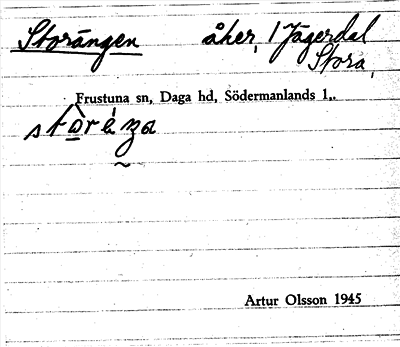 Storängen åker, 1 Jägerdal
Stora,
Frustuna sn, Daga hd, Södermanlands l,.
Artur Olsson 1945